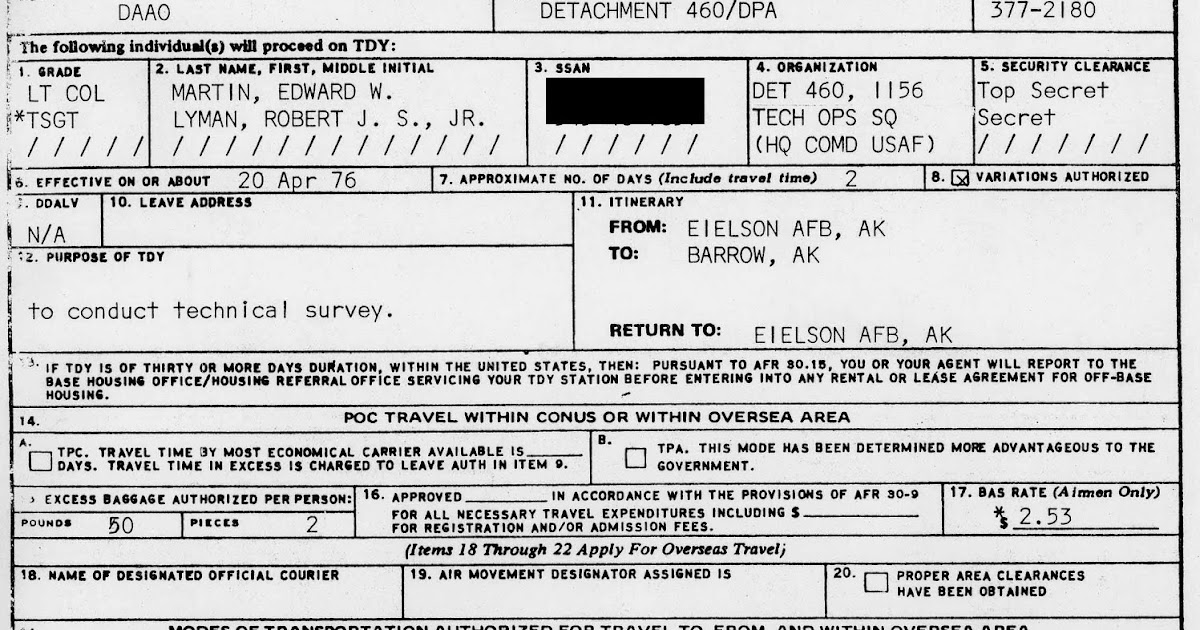 DAAO DETACHMENT 460/DPA 377-2180
The following individual(s) will proceed on TDY:
1. GRADE 2. LAST NAME, FIRST, MIDDLE INITIAL 3. SSAN 4. ORGANIZATION 5. SECURITY CLEARANCE
LT COL MARTIN, EDWARD W. DET 460, 1156 Top Secret
*TSGT LYMAN, ROBERT J. S., JR. TECH OPS SQ Secret
/ / / / / / / / / / / / / / / / / / / / / / / / (HQ COMD USAF) / / / / / / /
6. EFFECTIVE ON OR ABOUT 20 Apr 76 7. APPROXIMATE NO. OF DAYS (Include travel time) 2 8. ☒ VARIATIONS AUTHORIZED
DDALV 10. LEAVE ADDRESS 11. ITINERARY
N/A
FROM: EIELSON AFB, AK
TO: BARROW, AK
RETURN TO: EIELSON AFB, AK
12. PURPOSE OF TDY
to conduct technical survey.
IF TDY IS OF THIRTY OR MORE DAYS DURATION, WITHIN THE UNITED STATES, THEN: PURSUANT TO AFR 30.15, YOU OR YOUR AGENT WILL REPORT TO THE
BASE HOUSING OFFICE/HOUSING REFERRAL OFFICE SERVICING YOUR TDY STATION BEFORE ENTERING INTO ANY RENTAL OR LEASE AGREEMENT FOR OFF-BASE
HOUSING.
14. POC TRAVEL WITHIN CONUS OR WITHIN OVERSEA AREA
A. TPC. TRAVEL TIME BY MOST ECONOMICAL CARRIER AVAILABLE IS
DAYS. TRAVEL TIME IN EXCESS IS CHARGED TO LEAVE AUTH IN ITEM 9.
B. TPA. THIS MODE HAS BEEN DETERMINED MORE ADVANTAGEOUS TO THE
GOVERNMENT.
EXCESS BAGGAGE AUTHORIZED PER PERSON:
POUNDS 50 PIECES 2
16. APPROVED IN ACCORDANCE WITH THE PROVISIONS OF AFR 30-9
FOR ALL NECESSARY TRAVEL EXPENDITURES INCLUDING $
FOR REGISTRATION AND/OR ADMISSION FEES.
17. BAS RATE (Airmen Only)
*$ 2.53
(Items 18 Through 22 Apply For Overseas Travel)
18. NAME OF DESIGNATED OFFICIAL COURIER 19. AIR MOVEMENT DESIGNATOR ASSIGNED IS 20. PROPER AREA CLEARANCES
HAVE BEEN OBTAINED
MODES OF TRANSPORTATION AUTHORIZED FOR TRAVEL TO, FROM, AND WITHIN OVERSEA AREA